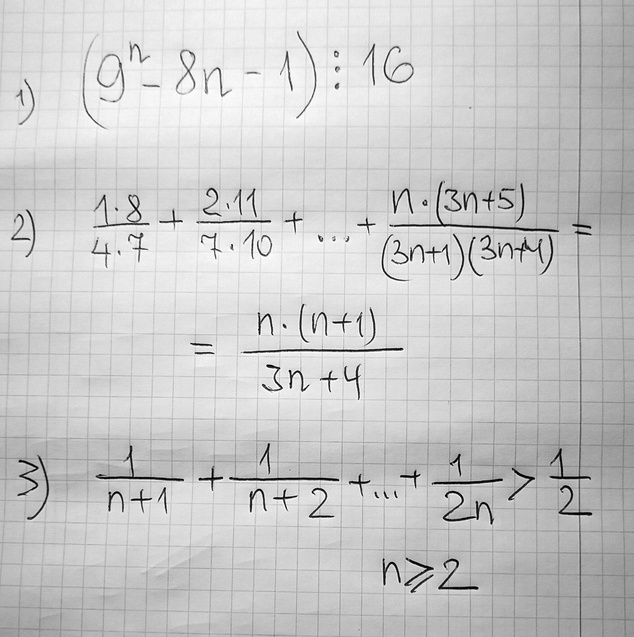 1) (9ⁿ - 8n - 1) ⋮ 16
2) 1·8/4·7 + 2·11/7·10 + ... + n·(3n+5)/(3n+1)(3n+4) =
= n·(n+1)/3n+4
3) 1/n+1 + 1/n+2 + ... + 1/2n > 1/2
n ⩾ 2